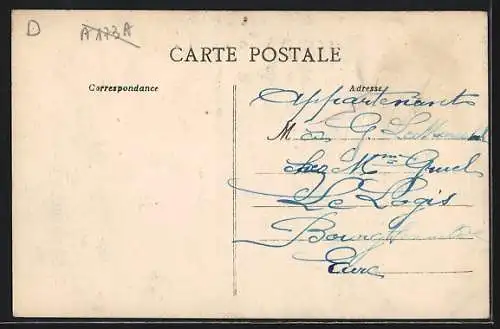 D
A173A
CARTE POSTALE
Correspondance
Adresse
Appartenant
M G.
chez Mme
Le Logis
Bourgtheroulde
Eure